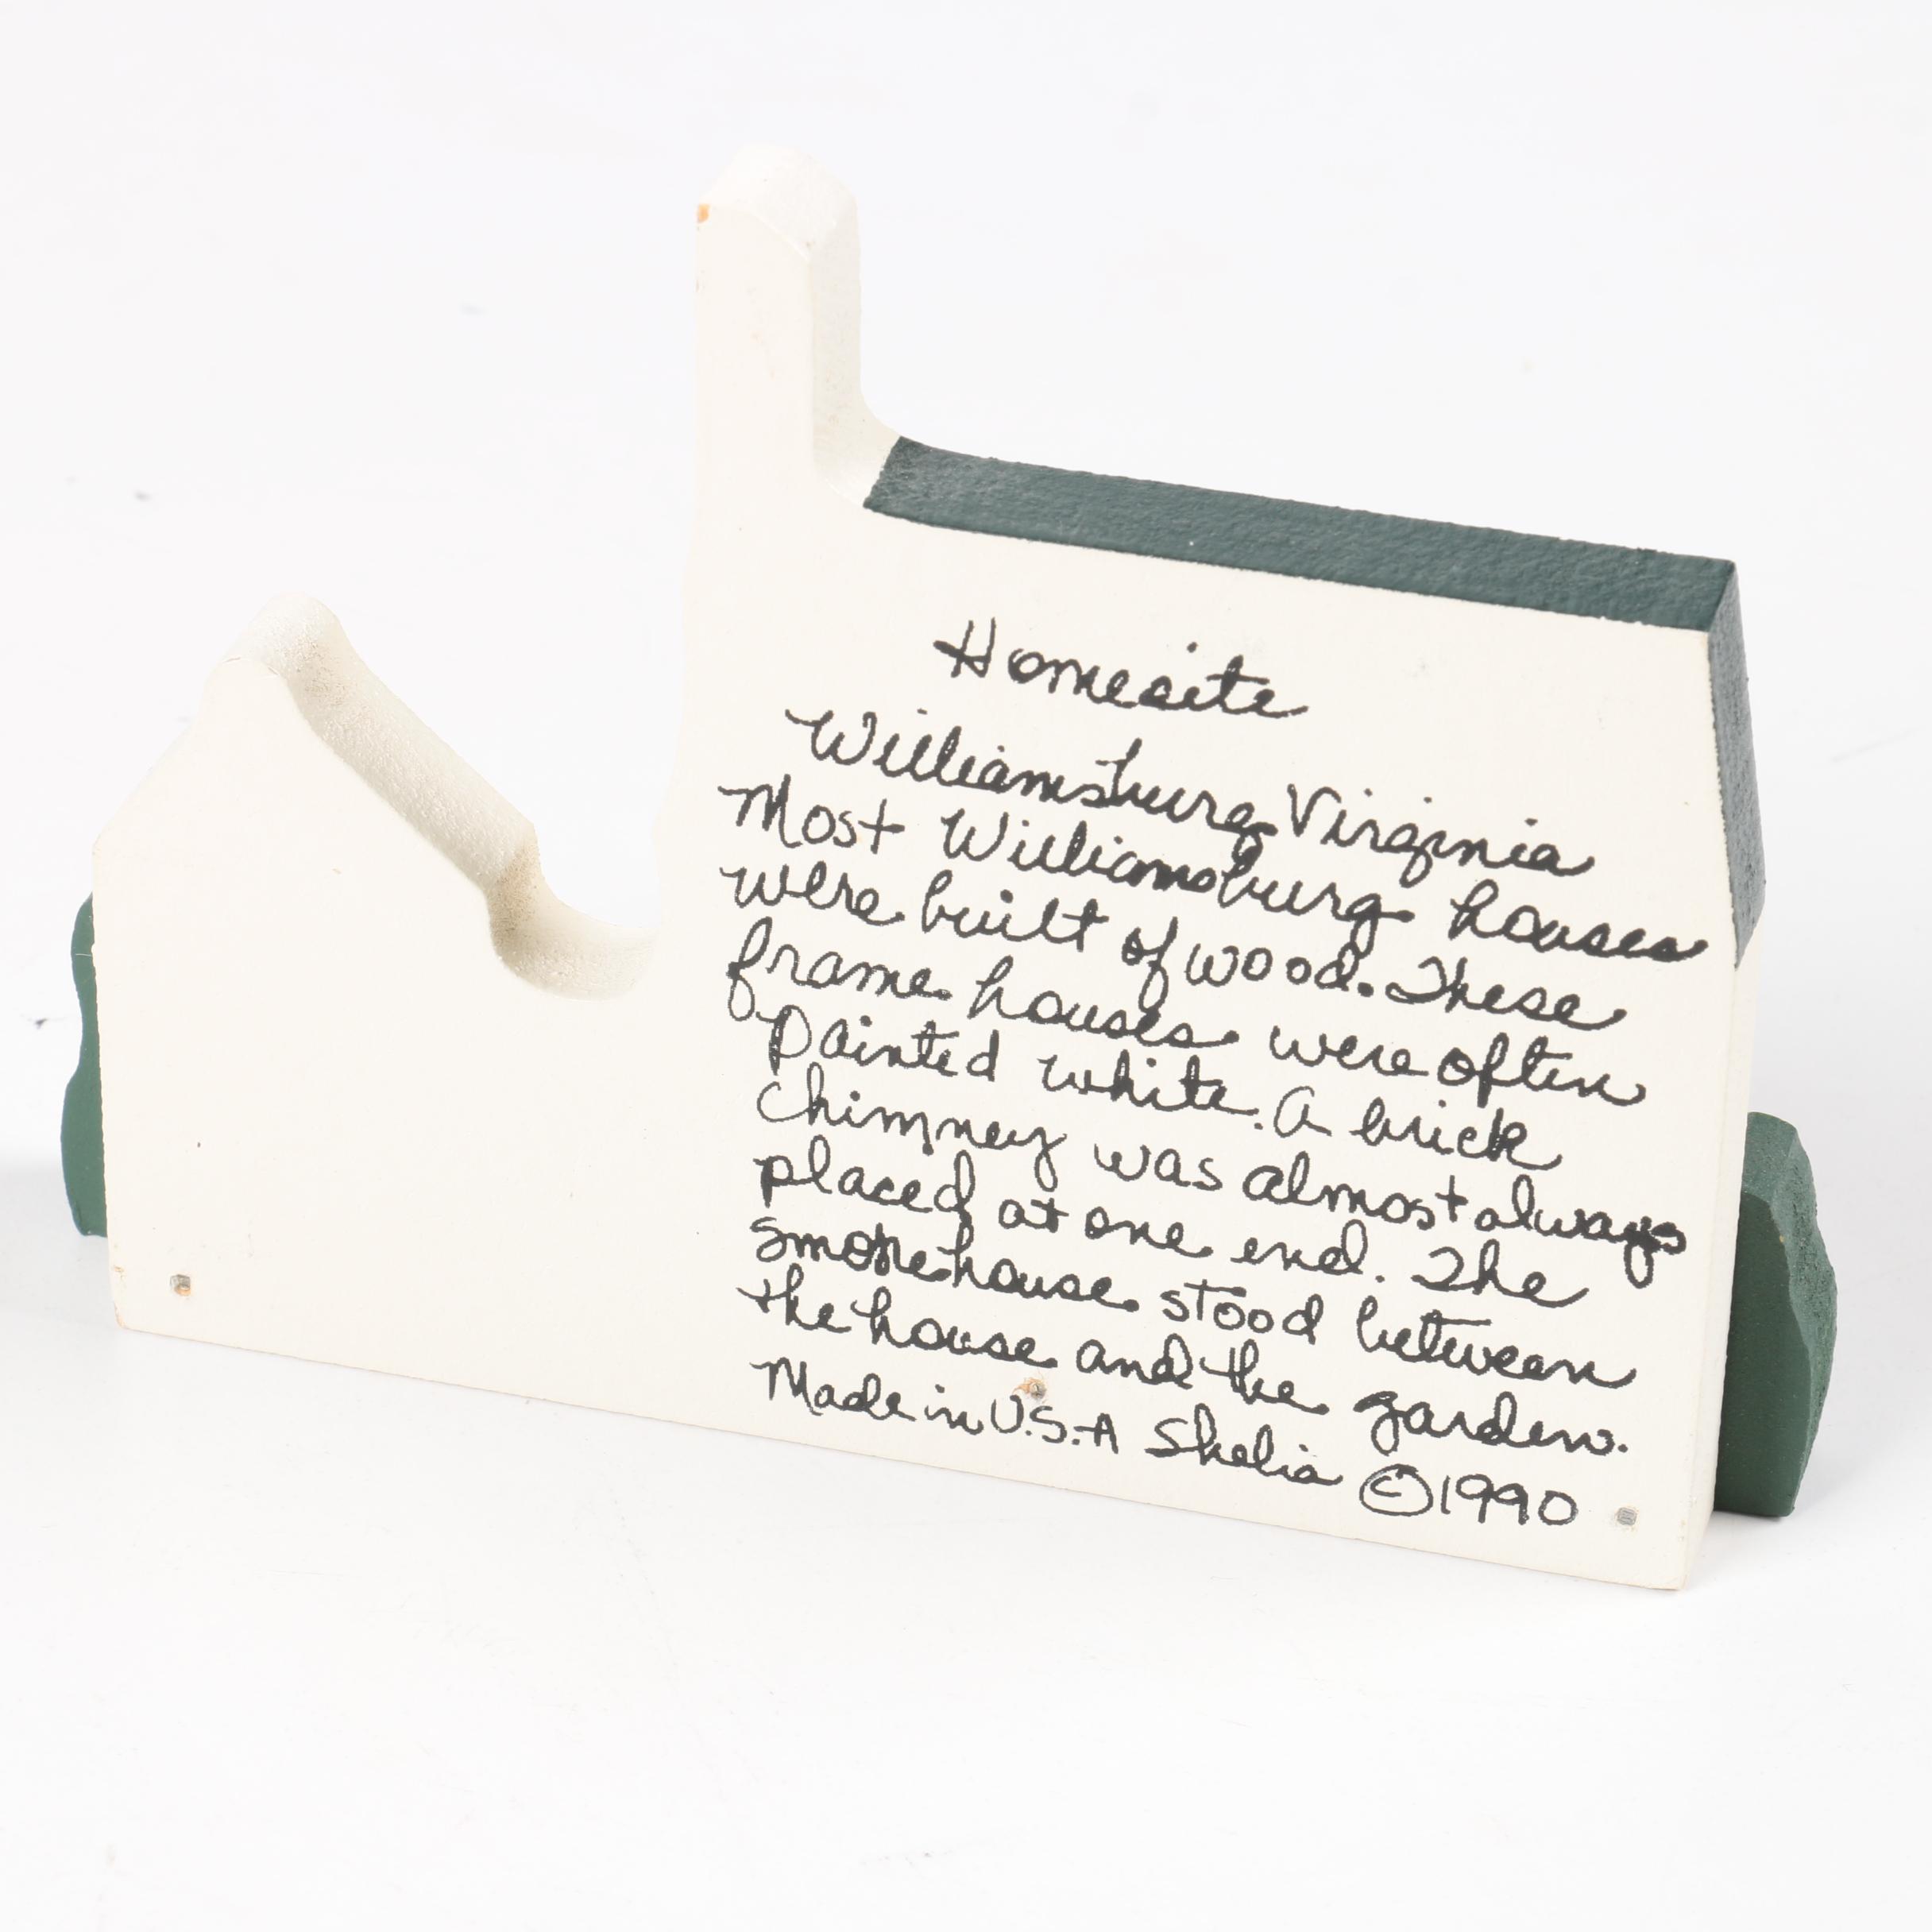 Homesite
Williamsburg, Virginia
Most Williamsburg houses
were built of wood. These
frame houses were often
Painted white. A brick
chimney was almost always
placed at one end. The
smokehouse stood between
the house and the garden.
Made in U.S.A Shelia ©1990